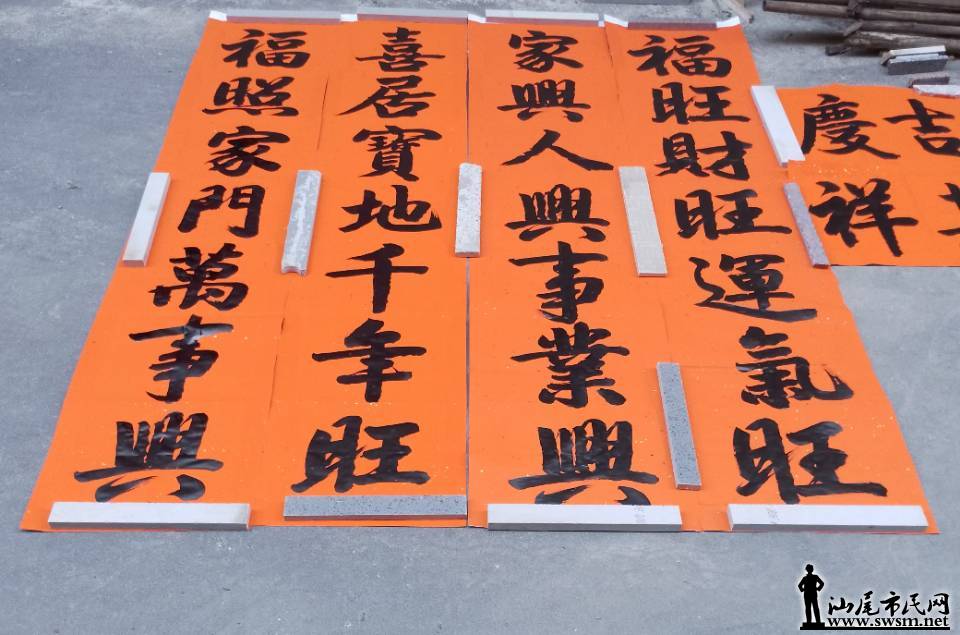 福旺財旺運氣旺
家興人興事業興
喜居寶地千年旺
福照家門萬事興
吉慶
祥
汕尾市民网
www.swsm.net